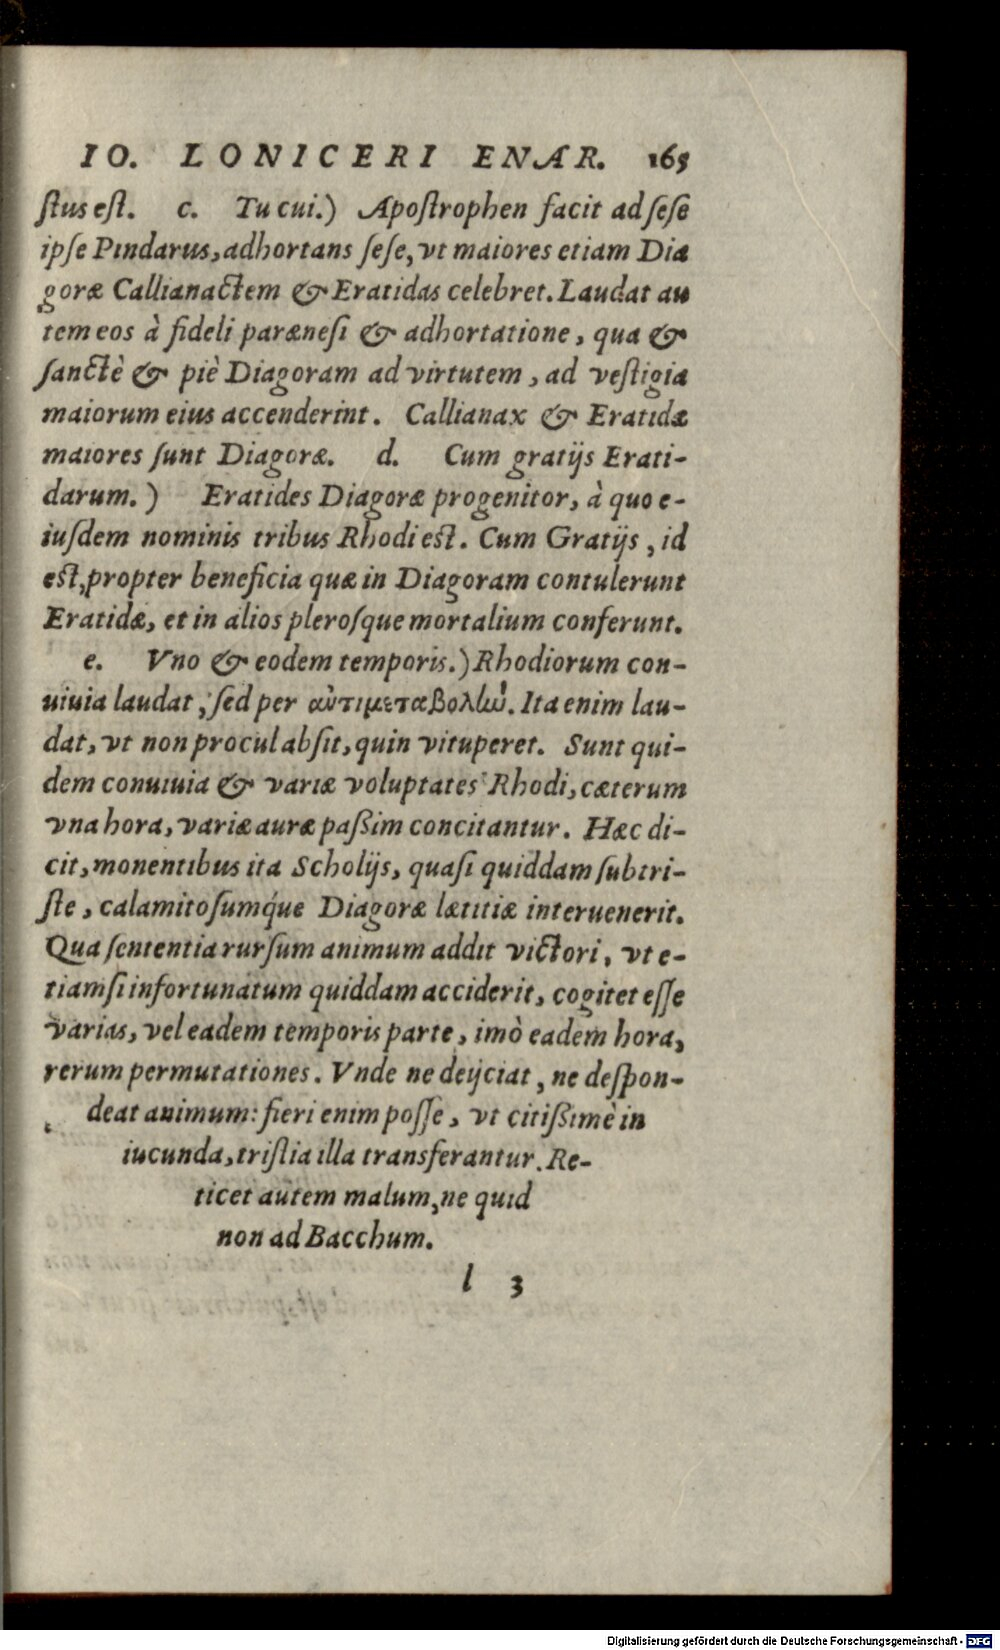 IO. LONICERI ENAR. 165
ſtus eſt. c. Tu cui.) Apoſtrophen facit ad ſeſe
ipſe Pindarus, adhortans ſeſe, vt maiores etiam Dia
goræ Callianactem & Eratidas celebret. Laudat au
tem eos à fideli parænesi & adhortatione, qua &
ſanctè & piè Diagoram ad virtutem, ad veſtigia
maiorum eius accenderint. Callianax & Eratidæ
maiores ſunt Diagoræ. d. Cum gratijs Erati-
darum.) Eratides Diagoræ progenitor, à quo e-
iuſdem nominis tribus Rhodi eſt. Cum Gratijs, id
eſt, propter beneficia quæ in Diagoram contulerunt
Eratidæ, et in alios pleroſque mortalium conferunt.
e. Vno & eodem temporis.) Rhodiorum con-
uiuia laudat, ſed per ἀντιμεταβολὴν. Ita enim lau-
dat, vt non procul abſit, quin vituperet. Sunt qui-
dem conuiuia & variæ voluptates Rhodi, cæterum
vna hora, variæ auræ paßim concitantur. Hæc di-
cit, monentibus ita Scholijs, quaſi quiddam ſubtri-
ſte, calamitoſumq́ue Diagoræ lætitiæ interuenerit.
Qua ſententia rurſum animum addit victori, vt e-
tiamſi infortunatum quiddam acciderit, cogitet eſſe
varias, vel eadem temporis parte, imò eadem hora,
rerum permutationes. Vnde ne deijciat, ne deſpon-
deat animum: fieri enim poſſe, vt citißimè in
iucunda, triſtia illa transferantur. Re-
ticet autem malum, ne quid
non ad Bacchum.
l 3
Digitalisierung gefördert durch die Deutsche Forschungsgemeinschaft - DFG